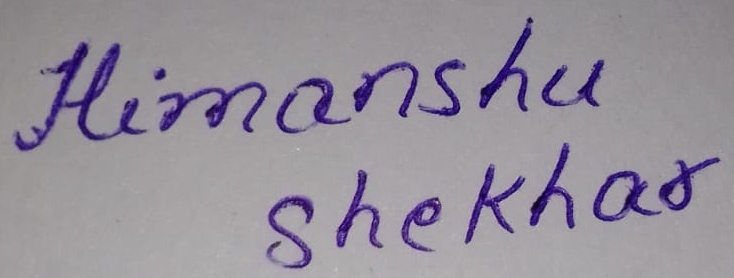 Himanshu
Shekhar